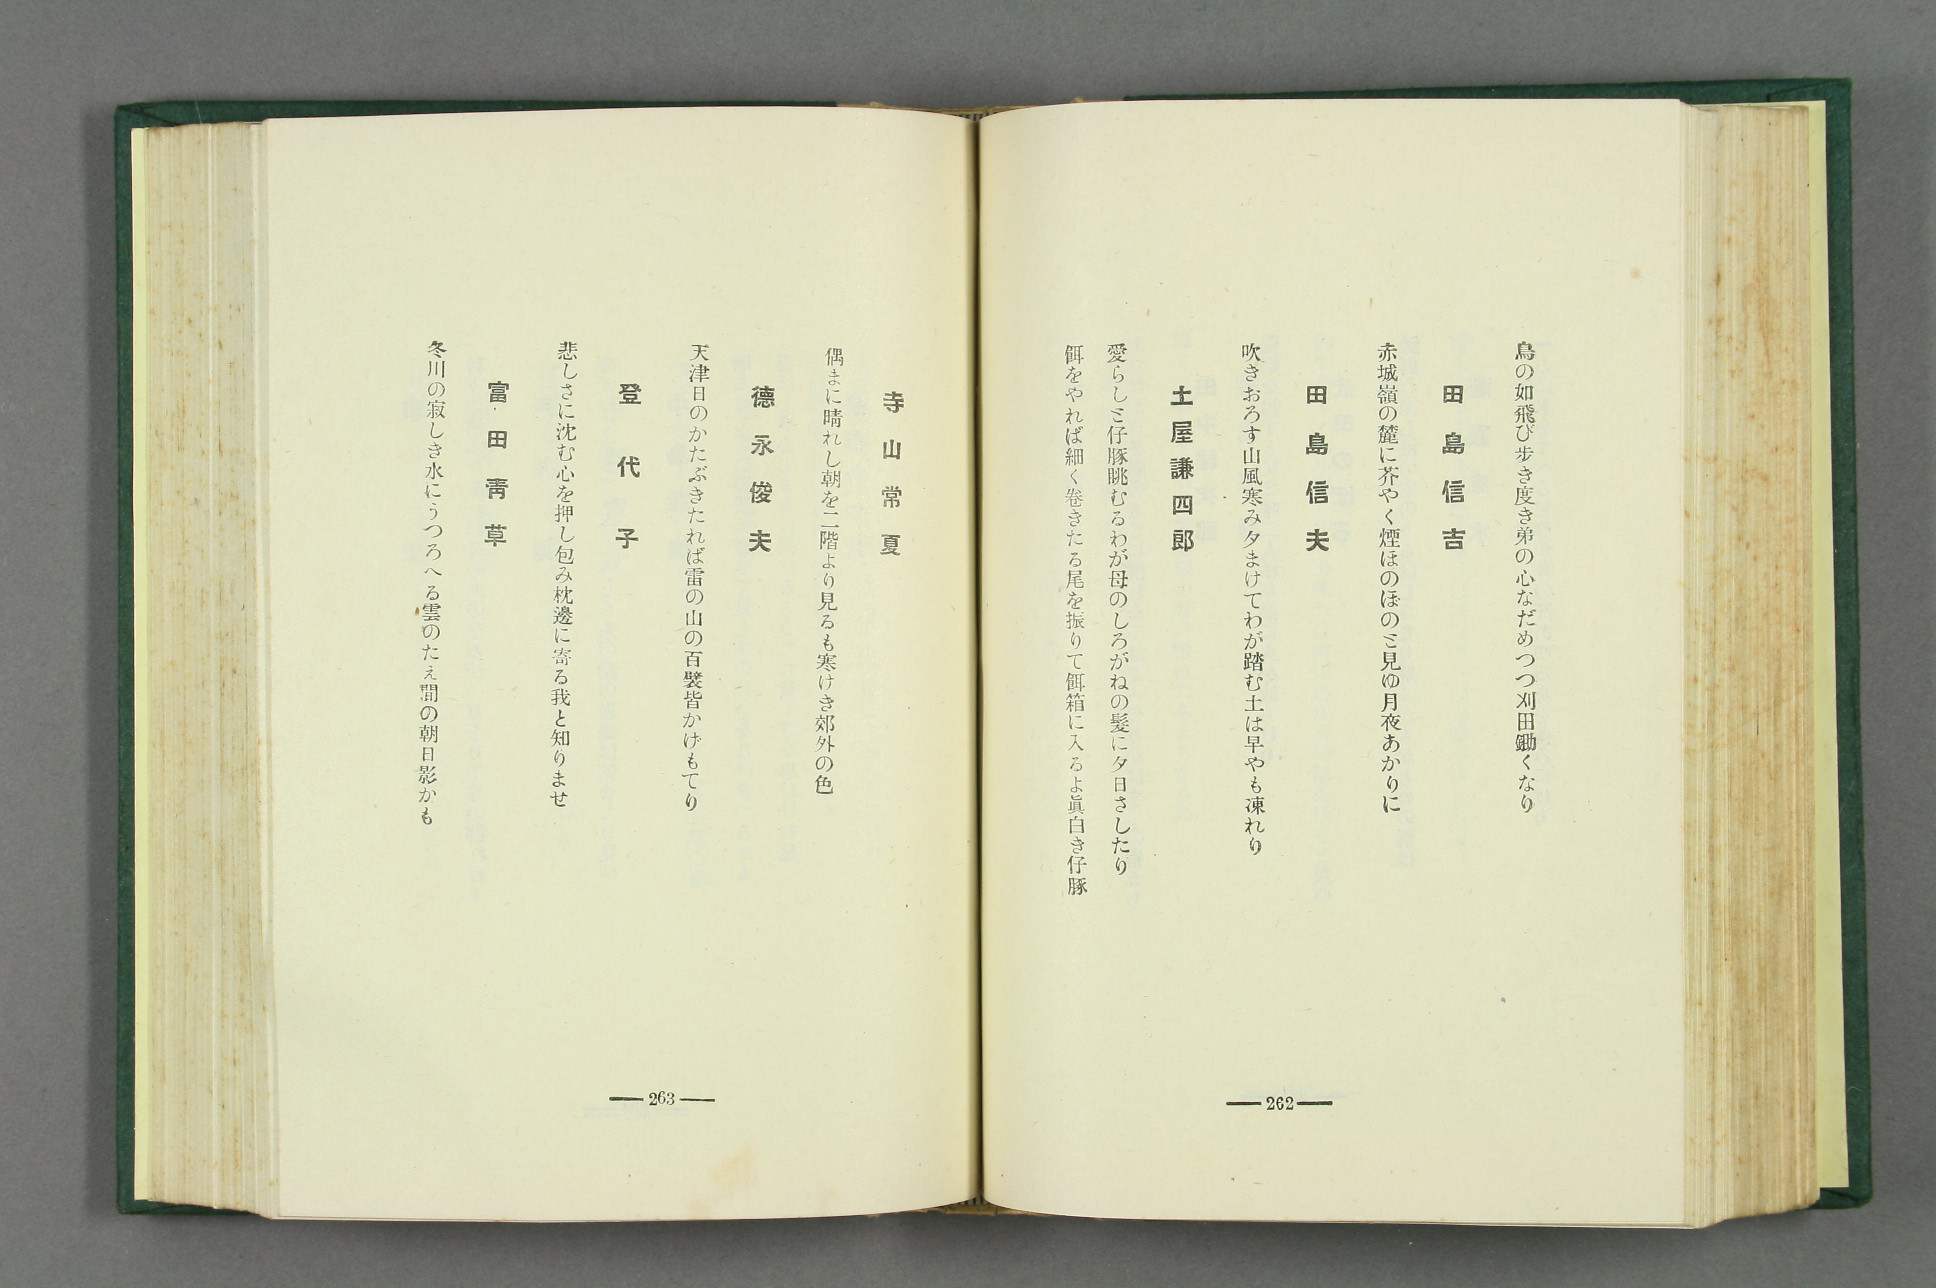 鳥の如飛び歩き度き弟の心なだめつつ刈田鋤くなり
田島信吉
赤城嶺の麓に芥やく煙ほのぼのと見ゆ月夜あかりに
田島信夫
吹きおろす山風寒み夕まけてわが踏む土は早やも凍れり
土屋謙四郎
愛らしと仔豚眺むるわが母のしろがねの髪に夕日さしたり
餌をやれば細く巻きたる尾を振りて餌箱に入るよ眞白き仔豚
262
寺山常夏
偶まに晴れし朝を二階より見るも寒けき郊外の色
德永俊夫
天津日のかたぶきたれば雷の山の百襞皆かげもてり
登代子
悲しさに沈む心を押し包み枕邊に寄る我と知りませ
富田靑草
冬川の寂しき水にうつろへる雲のたえ間の朝日影かも
263